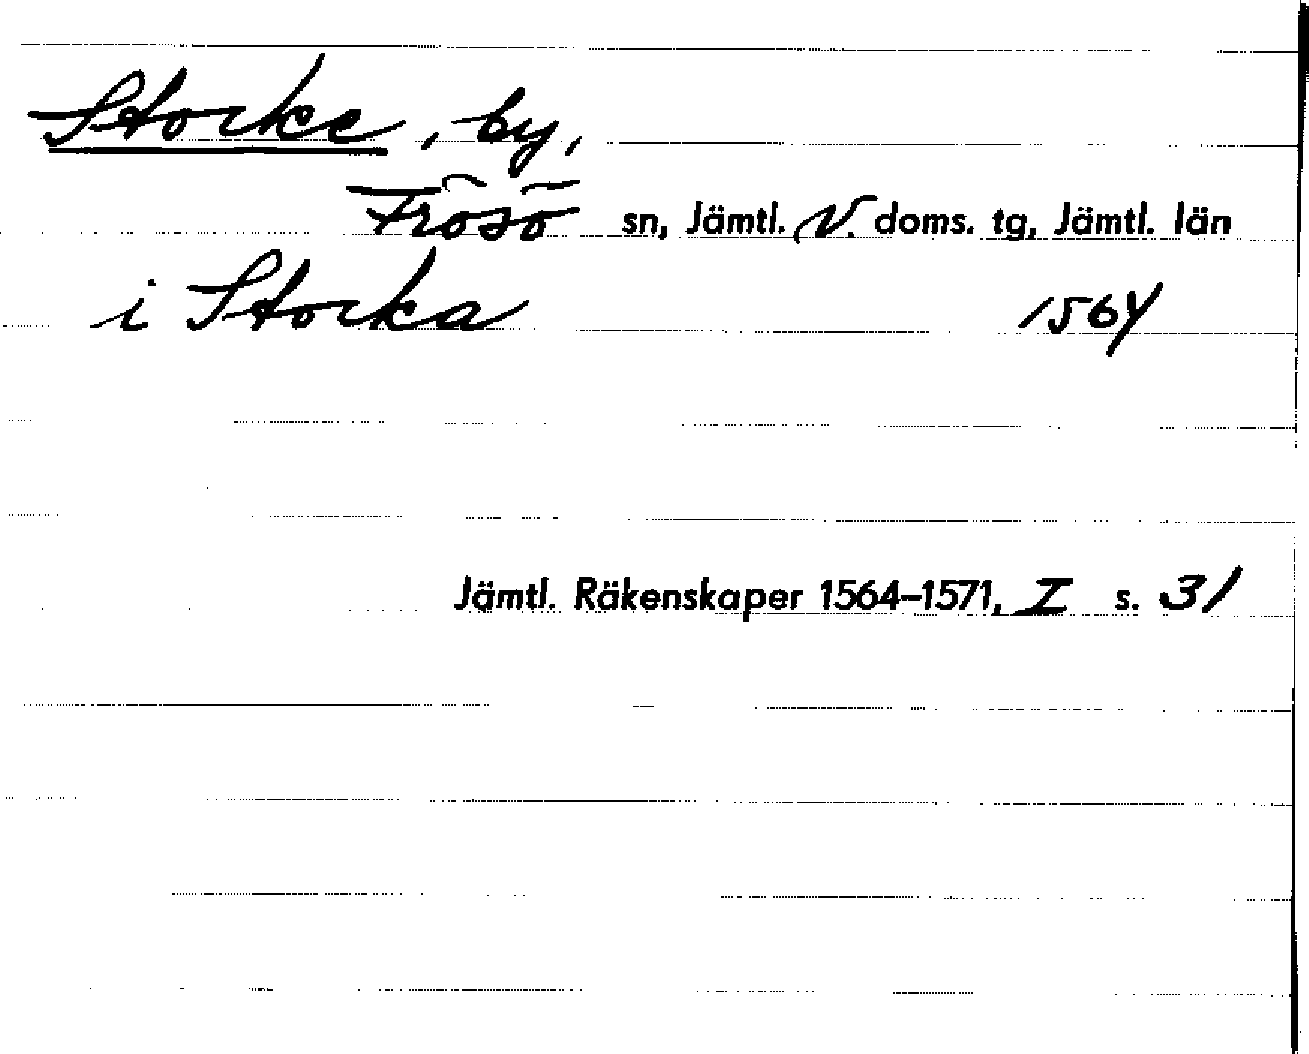 Stocke, by,
Frösö sn, Jämtl. V. doms. tg, Jämtl. län
i Stocka 1564
Jämtl. Räkenskaper 1564–1571, I s. 31